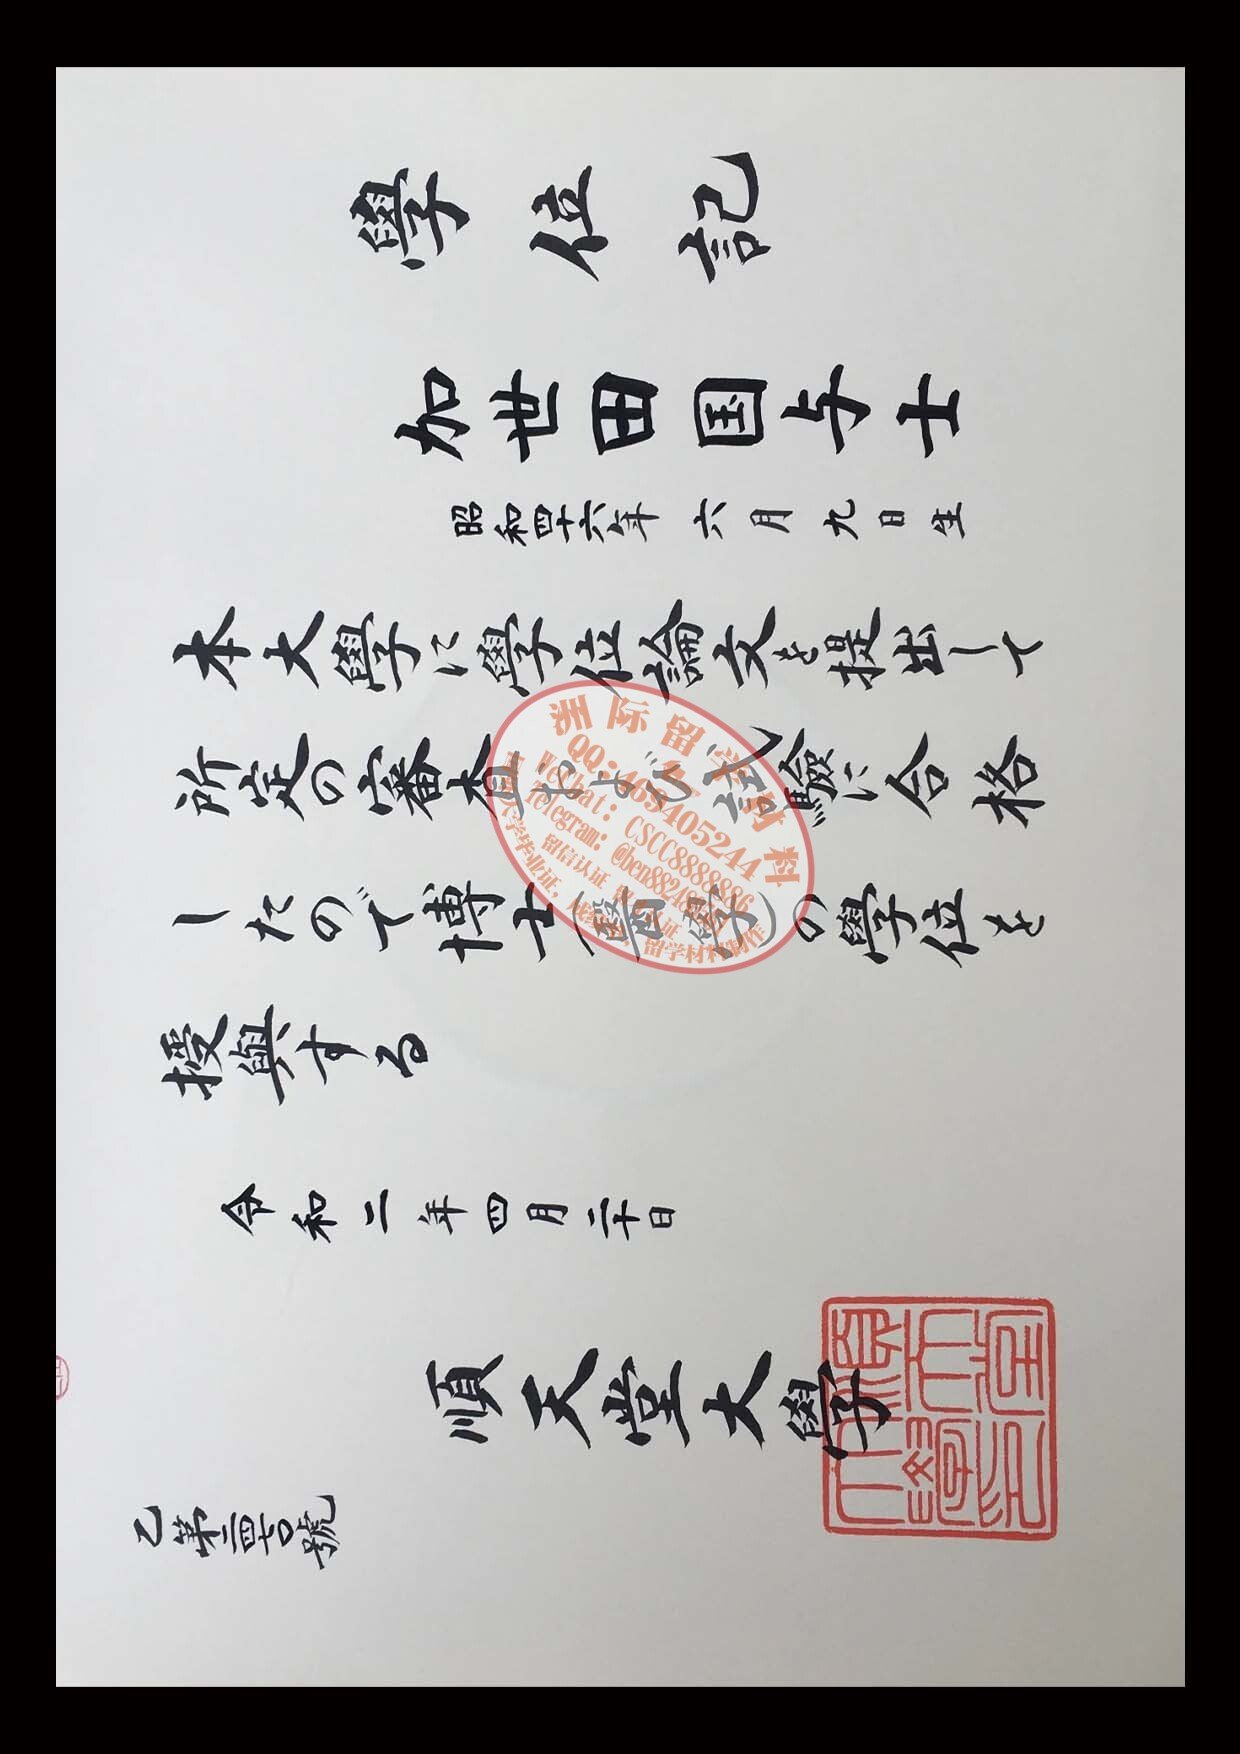 學位記
加世田国与士
昭和四十六年六月九日生
本大學に學位論文を提出して
所定の審査および試驗に合格
したので博士(醫學)の學位を
授與する
令和二年四月二十日
順天堂大學
乙第二四七〇號
洲际留学材料
QQ:463405244
Wechat: CSCC8888886
留信认证
留学材料制作